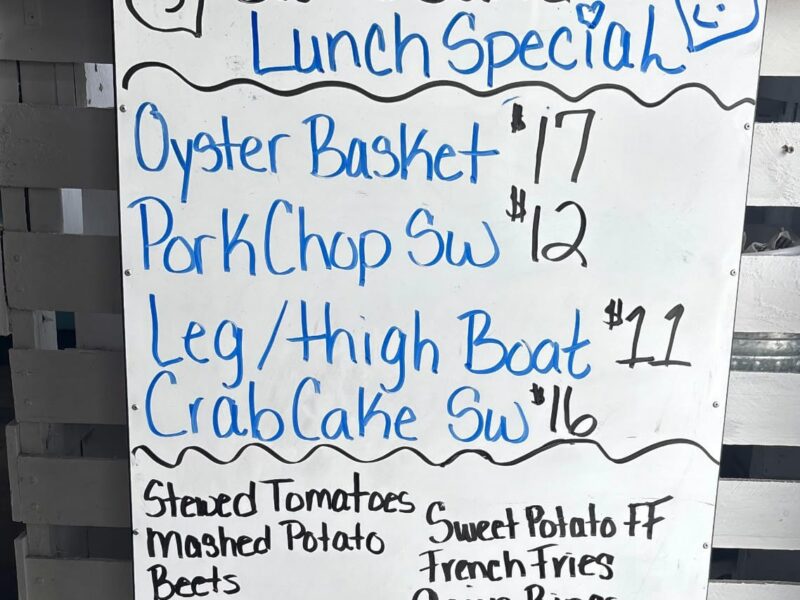 Lunch Special
Oyster Basket $17
Pork Chop Sw $12
Leg/thigh Boat $11
Crab Cake Sw $16
Stewed Tomatoes
Mashed Potato
Beets
Sweet Potato FF
French Fries